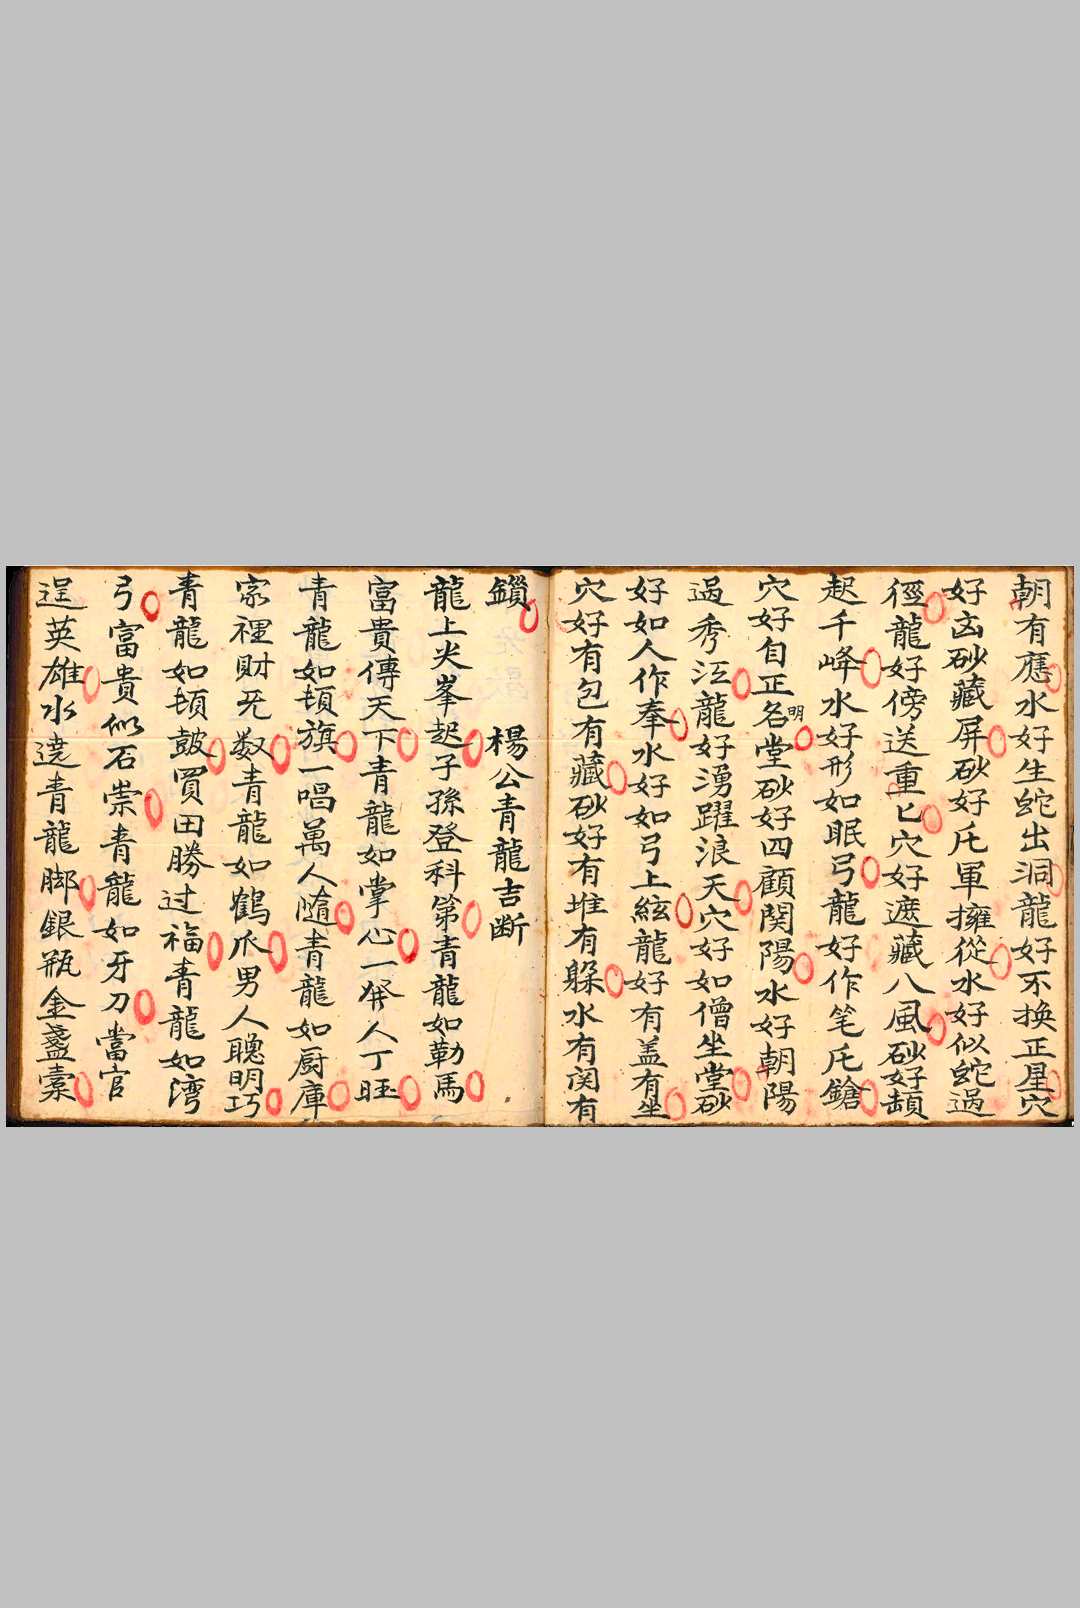 朝有應水好生蛇出洞龍好不换正星穴
好玄砂藏屏砂好氕軍擁從水好似蛇過
徑龍好傍送重匕穴好遮藏八風砂好
起千峰水好形如眠弓龍好作笔鎗
穴好自正名明堂砂好四顧関陽水好朝陽
過秀江龍好湧躍浪天穴好如僧坐堂砂
好如人作奉水好如弓上絃龍好有盖有坐
穴好有包有藏砂好有堆有躲水有関有
鎖 楊公青龍吉断
龍上尖峯起子孫登科第青龍如勒馬
富貴傳天下青龍如掌心一發人丁旺
青龍如頓旗一唱萬人隨青龍如厨庫
家裡財无数青龍如鶴爪男人聰明巧
青龍如頓皷買田勝过福青龍如湾
弓富貴似石崇青龍如牙刀當官
逞英雄水遶青龍脚銀瓶金盞